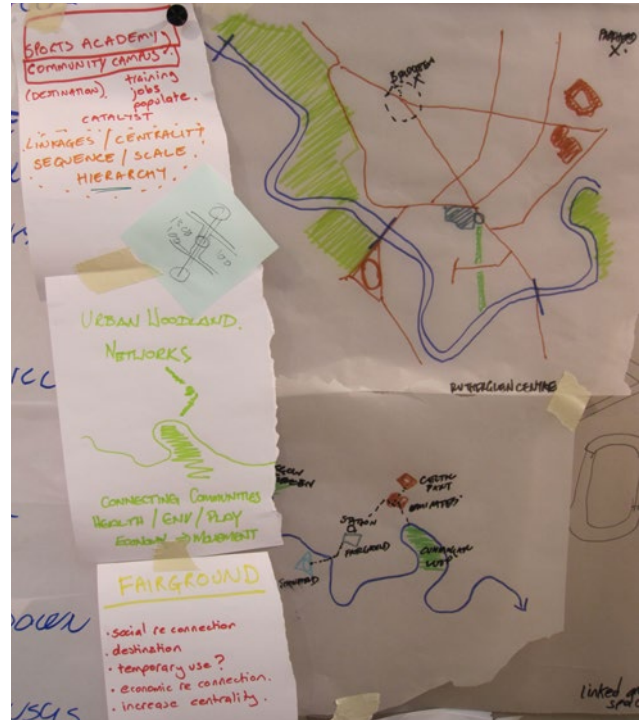 SPORTS ACADEMY
COMMUNITY CAMPUS?
(DESTINATION)
training
jobs
populate.
CATALYST
LINKAGES / CENTRALITY
SEQUENCE / SCALE
HIERARCHY
URBAN WOODLAND.
NETWORKS
CONNECTING COMMUNITIES
HEALTH / ENV / PLAY
ECONOMY ⇒ MOVEMENT
FAIRGROUND
• social re connection
• destination
• temporary use?
• economic re connection.
• increase centrality.
PARKHEAD
RUTHERGLEN CENTRE
CELTIC
STATION
FAIRGROUND
linked